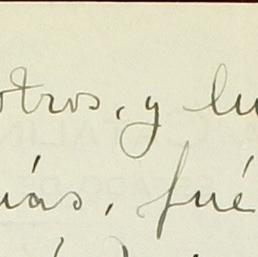 otros, y lu
uás, fué